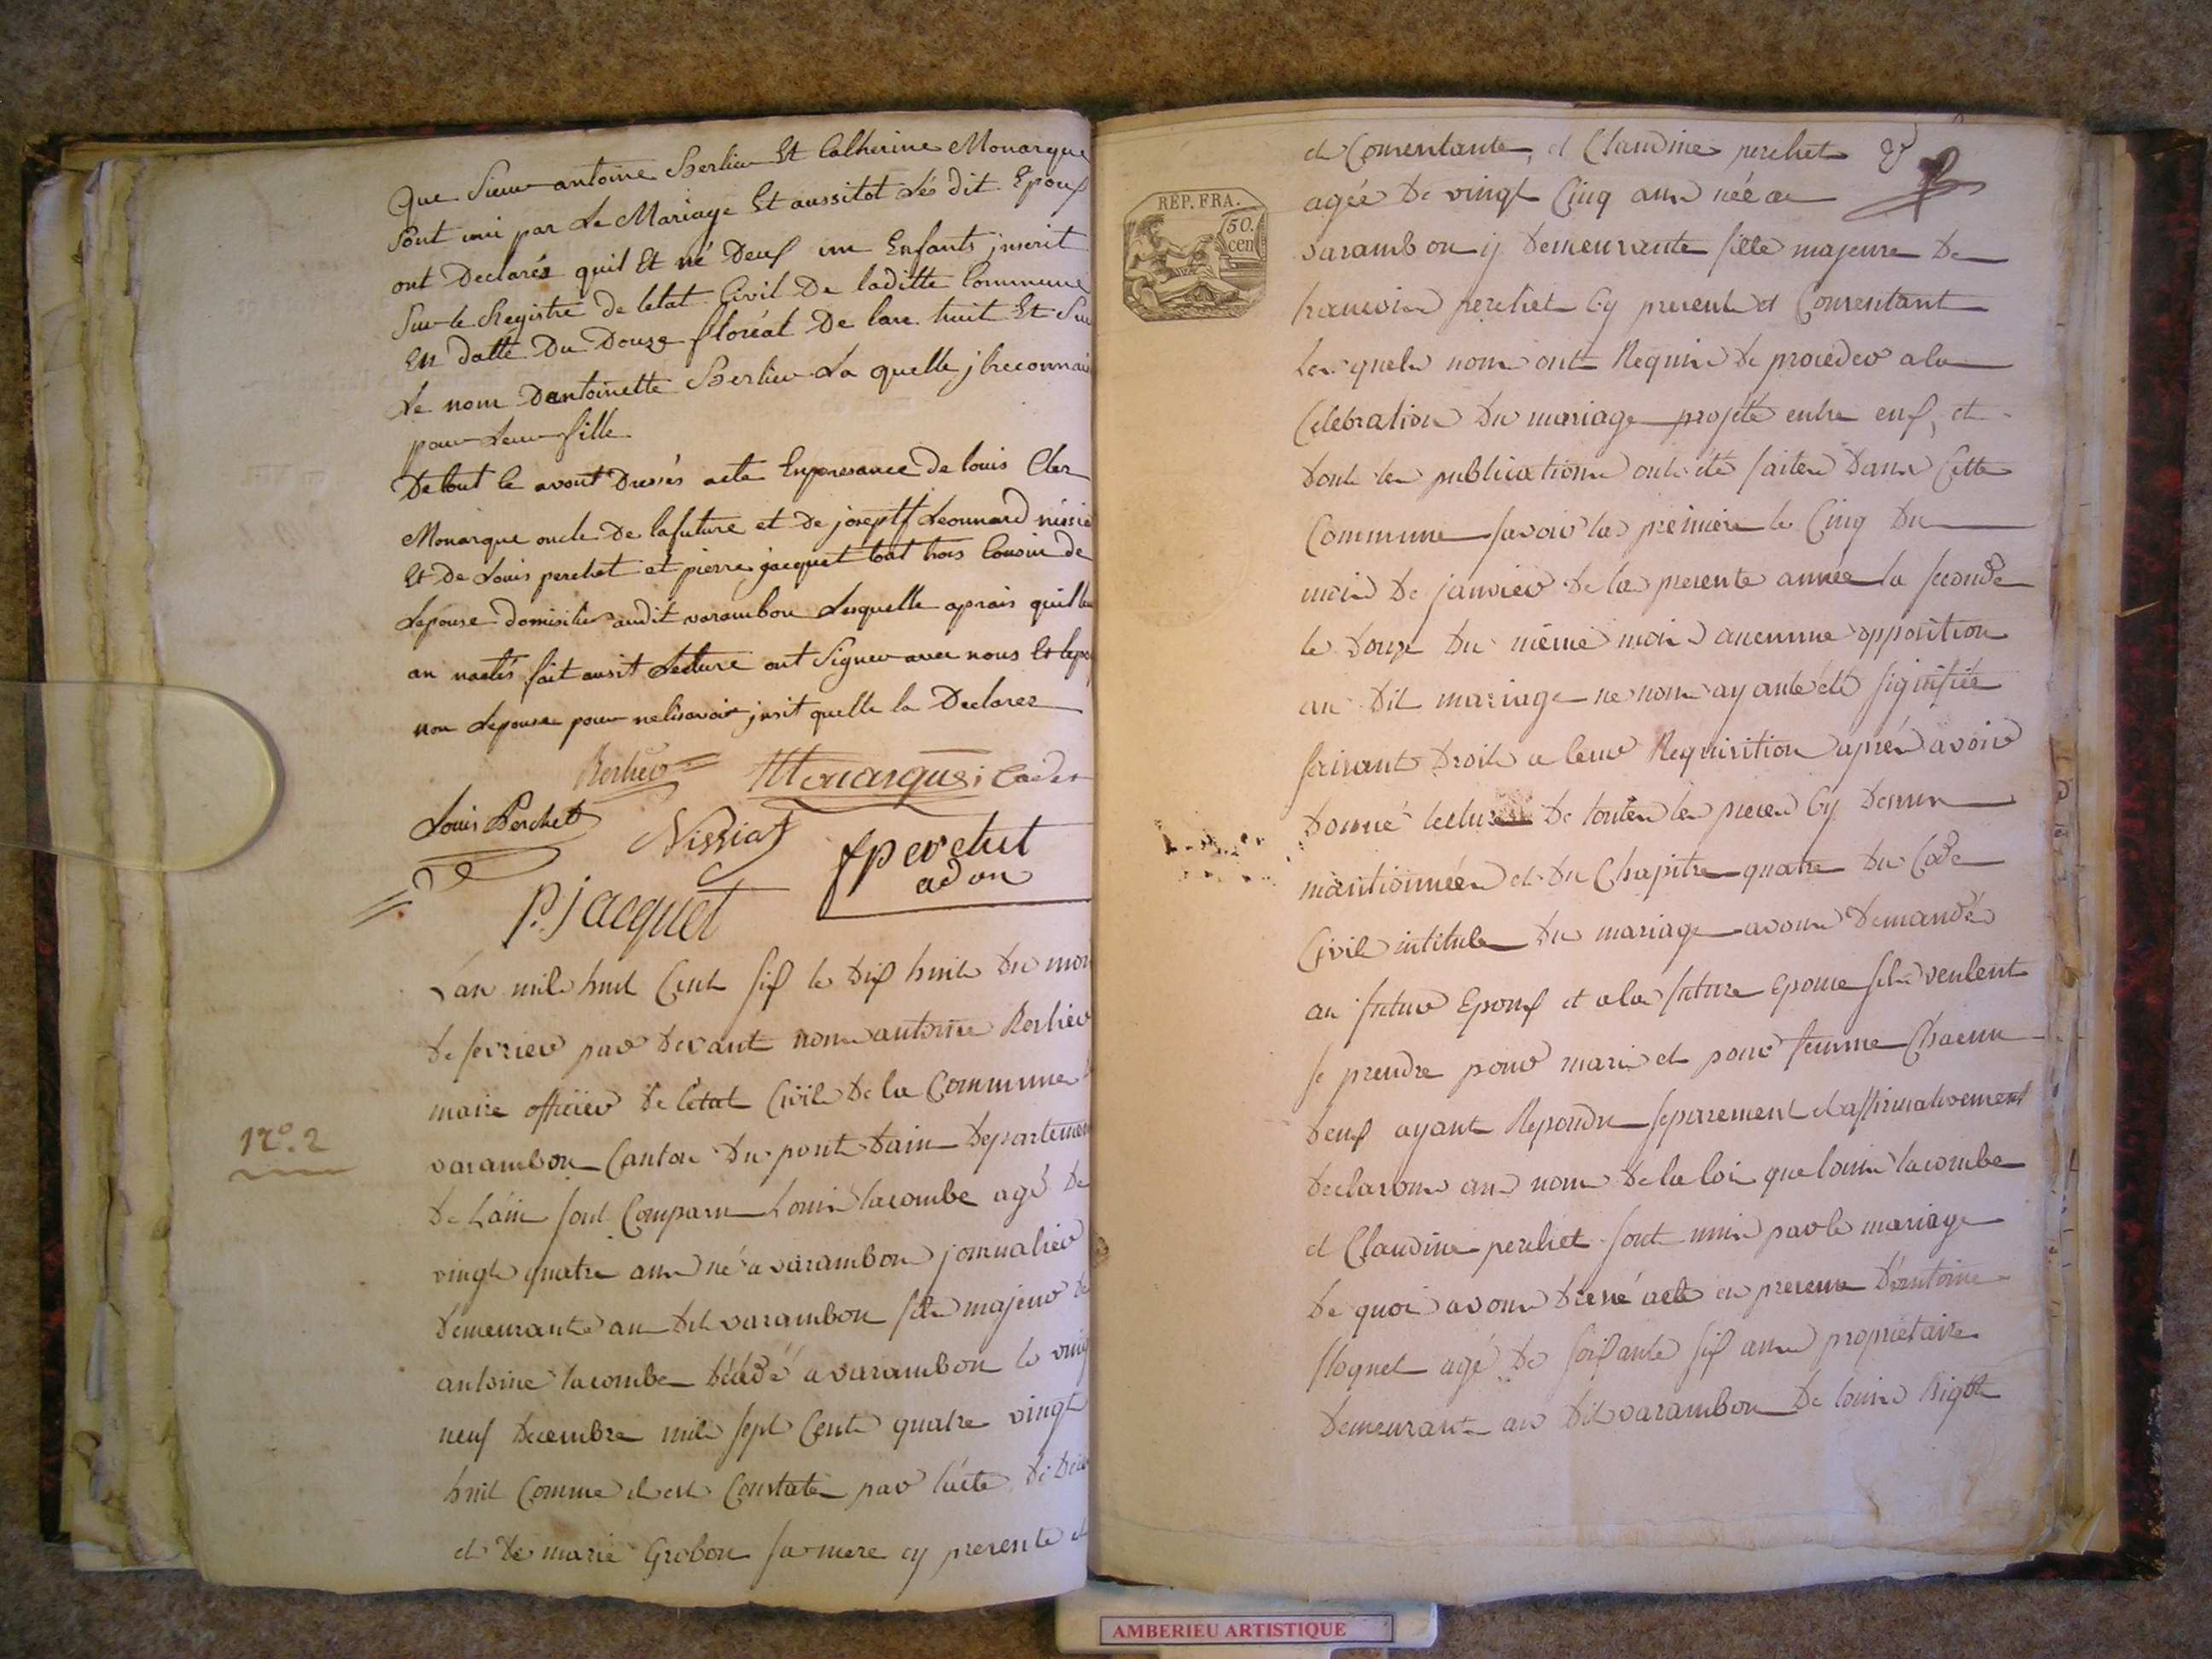 Que Sieur antoine Berliev Et Catherine Monarque
Sont uni par Le Mariage Et aussitot Lés dit Epouf
ont Declarés quil Et né Deuf un Enfants jnscrit
Sur le Registre de letat Civil De laditte Commune
En datte Du Douze floréal De lan huit Et Sur
Le nom Dantoinette Berliev La quelle j
pour Leur fille
De tout ce avont Dressés acte Enpresance De louis Cler
Monarque oncle De lafuture et De joseptf Leonnard nissia
Et De Louis perchet et pierre jacquet tout trois Cousin de
Lepouse domicilié audit varambon Lesquelle aprais quil
an naetés fait ausit Lecture ont Signer avec nous Et lepou
non Lepouse pour nelesavoir jnsit quelle la Declarez
Berliev Monarque Cadet
Louis Perchet Nissiat fperchet
adon
P. jacquet
L'an mile huit Cent sif le dif huit du mois
de fevriev pav devant nous antoine Berliev
maire officiev de l'état Civile de la Commune
varambon Canton du pont dain departemen
de L'ain sont Comparu Louis lacombe agé de
vingt quatre ans né a varambon journaliev
demeurant au dit varambon fils majeur de
antoine lacombe décédé a varambon le vingt
neuf decembre mile sept Cent quatre vingt
huit Comme il est Constaté pav l'acte de décè
et de marie Grobon sa mere cy presente et
N°. 2
REP. FRA.
50.
cen
et Consentante, et Claudine perchet
agée de vingt Cinq ans née a
varambon y demeurante fille majeure de
francois perchet Cy present et Consentant
Les quels nous ont Requis de procedev a la
Celebration du mariage projeté entre euf, et
dont les publications ont été faites dans Cette
Commune savoir la premiere le Cinq du
mois de janviev de la presente année la seconde
le douze du même mois aucunne opposition
au dit mariage ne nous ayante été signifiée
faisant droit a leur Requisition après avoir
donné lecture de toutes les pieces Cy dessus
mentionnées et du Chapitre quatre du Code
Civile intitule du mariage avons demandé
au futur Epouf et a la future Epouse sils veulent
se prendre pour mari et pour femme Chacun
deuf ayant Repondu separement et affirmativement
declarons au nom de la loi que louis lacombe
et Claudine perchet sont unis pav le mariage
de quoi avons dressé acte en presence d'antoine
floquet agé de soifante sif ans propriétaire
demeurant au dit varambon de louis Rigot
AMBERIEU ARTISTIQUE